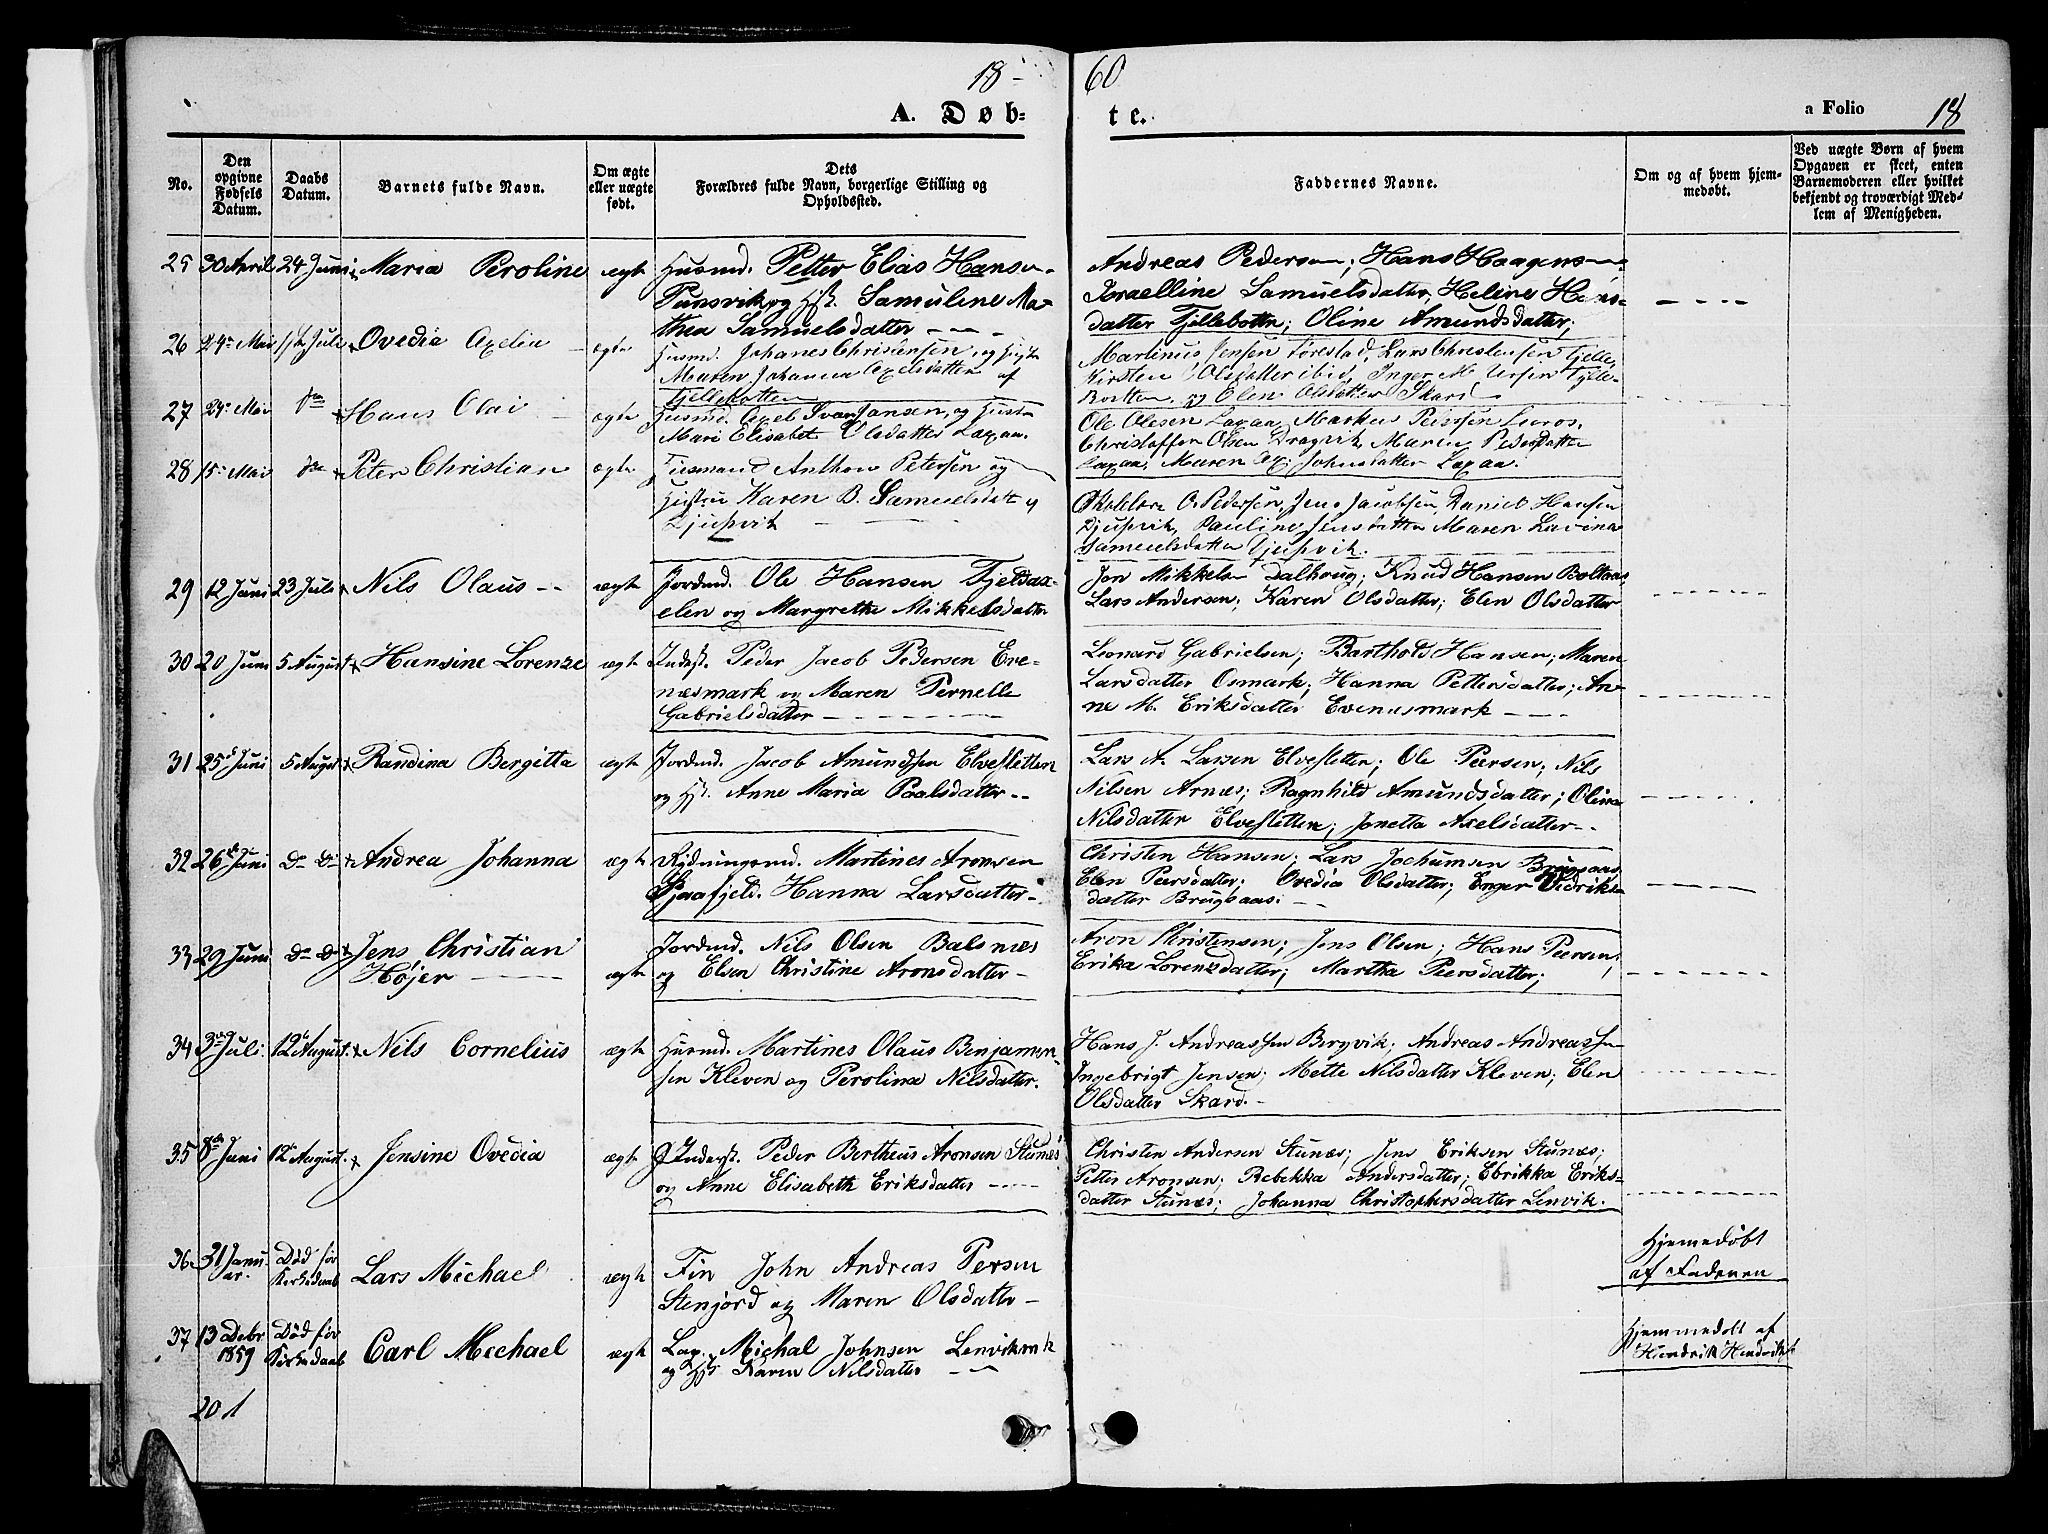 18-
60
A. Døb-
te.
a Folio 18
No.
Den opgivne Fødsels Datum.
Daabs Datum.
Barnets fulde Navn.
Om ægte eller uægte født.
Dets Forældres fulde Navn, borgerlige Stilling og Opholdssted.
Faddernes Navne.
Om og af hvem hjemmedøbt.
Ved uægte Børn af hvem Opgaven er skeet, enten Barnemoderen eller hvilket bekjendt og troværdigt Medlem af Menigheden.
25 30 April 24 Juni Maria Peroline ægte Husmd. Petter Elias Hansen
Tunsvik og Hst. Samuline Ma-
thea Samuelsdatter
Andreas Pedersen; Hans Haagensen
Israelline Samuelsdatter, Heline Hans-
datter Fjellebotten; Oline Amundsdatter;
26 24 Mai Juli Ovedia Axelia ægte Husmd. Johanes Christensen og Hustr
Maren Johanna Axelsdatter af
Fjellebotten
Martinus Jensen Forstad, Lars Christensen Fjelle
Kirsten Olsdatter ibid, Inger M. Fjelle-
botten, og Elen Olsdatter Skard
27 24 Mai do Hans Olai ægte Husmd. Axel Ivar Jansen, og Hustr
Mari Elisabet Olsdatter Laxaa.
Ole Olesen Laxaa, Markus Pedersen Leros,
Christoffer Olsen Dragvik, Maren Pedersdatter
Laxaa, Maren Johnsdatter Laxaa.
28 15 Mai do Peter Christian ægte Huusmand Anthon Petersen og
Hustru Karen B. Samuelsdatt
Djupvik
O. Pedersen, Jens Jacobsen, Daniel Hansen
Djupvik, Pauline Jensdatter Maren Lavina
Samuelsdatter Djupvik.
29 12 Juni 23 Juli Nils Olaus ægte Jordmd. Ole Hansen Fjeldax-
elen og Margrethe Mikkelsdatter
Jon Mikkelsen Dalhoug; Knud Hansen Boltaas
Lars Andersen; Karen Olsdatter; Elen Olsdatter
30 20 Juni 5 August Hansine Lorenze ægte Inderst. Peder Jacob Pedersen Eve-
næsmark og Maren Pernelle
Gabrielsdatter
Leonard Gabrielsen; Barthold Hansen; Maren
Larsdatter Osmark; Hanna Pettersdatter; An-
ne M. Eriksdatter Evenesmark
31 25 Juni 5 August Randina Bergitta ægte Jordmd. Jacob Amundsen Elvesletten
og Hst. Anne Maria Paalsdatter
Lars A. Larsen Elvesletten; Ole Peersen; Nils
Nilsen Arnæs; Ragnhild Amundsdatter; Olina
Nilsdatter Elvesletten; Jonetta Axelsdatter
32 26 Juni do do Andrea Johanna ægte Rydningsmd. Martines Aronsen
Graafjeld. Hanna Larsdatter
Christen Hansen; Lars Jochumsen Brugsaas
Elen Peersdatter; Ovedia Olsdatter; Enger Didriks-
datter Brugsaas.
33 29 Juni do do Jens Christian
Højer
ægte
Jordmd. Nils Olsen Balsnes
og Elsen Christine Aronsdatter
Aron Christensen; Jens Olsen; Hans Peersen;
Erika Lorenzdatter; Martha Peersdatter;
34 3 Juli 12 August Nils Cornelius ægte Husmd. Martines Olaus Benjamin-
sen Kleven og Perolina Nilsdatter.
Hans J. Andreassen Bergvik; Andreas Andreassen
Ingebrigt Jensen; Mette Nilsdatter Kleven; Elen
Olsdatter Skard.
35 8 Juni 12 August Jensine Ovedia ægte Inderst. Peder Bertheus Aronsen Stunæs
og Anne Elisabeth Eriksdatter
Christen Andersen Stunæs; Jens Eriksen Stunæs;
Petter Aronsen; Rebekka Andersdatter; Ebrikka Eriks-
datter Stunæs; Johanna Christophersdatter Lenvik.
36 31 Janu-
ar. Død før Kirkedaab Lars Michael ægte Fin John Andreas Persen
Stenjord og Maren Olsdatter
Hjemedøbt
af Faderen
37 13 Decbr 1859 Død før Kirkedaab Carl Michael ægte Lap. Michal Johnsen Lenvikmk
og Hst Karen Nilsdatter
Hjemmedøbt af
Hendrik Hendriks
201